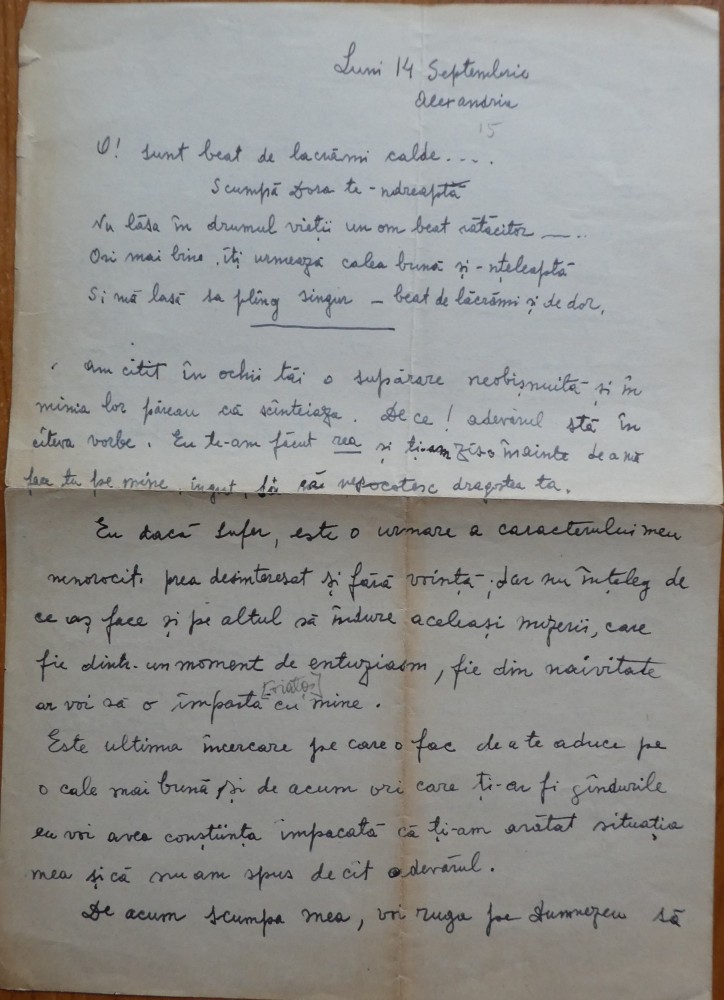 Luni 14 Septembrie
Alexandria
15
O! sunt beat de lacrămi calde....
Scumpă Dora te-ndreaptă
Nu lăsa în drumul vieții un om beat rătăcitor
Ori mai bine, îți urmează calea bună și-nțeleaptă
Si mă lasă sa plîng singur – beat de lăcrămi și de dor,
Am citit în ochii tăi o supărare neobișnuită și în
minia lor păreau că scînteiaza. De ce! adevărul stă în
cîteva vorbe. Eu te-am făcut rea și ți-am zis-o înainte de a mă
face tu pe mine, ingrat, că nesocotesc dragostea ta.
Eu dacă sufer, este o urmare a caracterului meu
nenorocit, prea desinteresat și fără voință; dar nu înțeleg de
ce aș face și pe altul să îndure aceleași mizerii, care
fie dintr-un moment de entuziasm, fie din naivitate
ar voi să o împartă cu mine.
Este ultima încercare pe care o fac de a te aduce pe
o cale mai bună și de acum ori care ți-ar fi gîndurile
eu voi avea conștiința împacată că ți-am arătat situația
mea și că nu am spus decît adevărul.
De acum scumpa mea, voi ruga pe Dumnezeu să